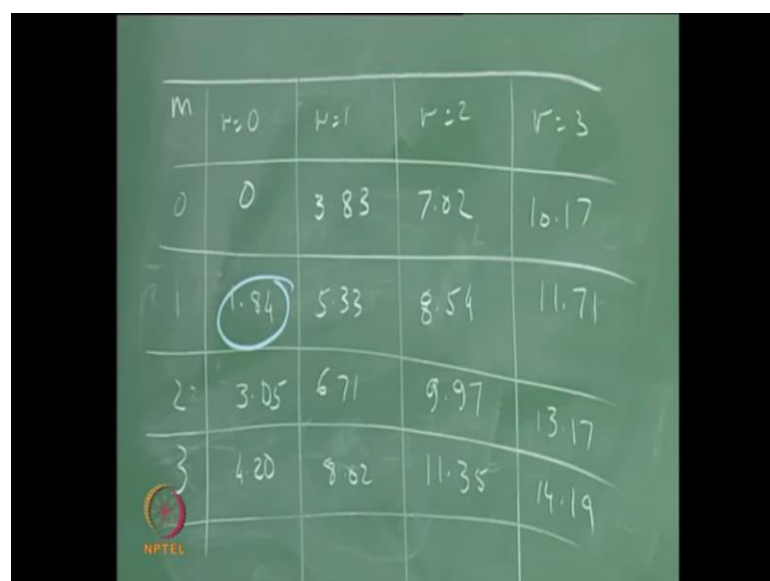 m r=0 r=1 r=2 r=3
0 0 3.83 7.02 10.17
1 1.84 5.33 8.54 11.71
2 3.05 6.71 9.97 13.17
3 4.20 8.02 11.35 14.19
NPTEL